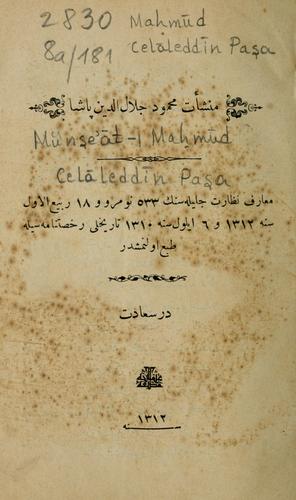 2830 Mahmūd
8a/181 Celāleddīn Paşa
منشأت محمود جلال الدين پاشا
Münşe'āt-ı Mahmūd
Celāleddīn Paşa
معارف نظارت جليله سنك ٥٣٣ نومرو و ١٨ ربيع الاول
سنه ١٣١٢ و ٦ ايلول سنه ١٣١٠ تاريخلى رخصتنامه سيله
طبع اولنمشدر
در سعادت
١٣١٢
سنه